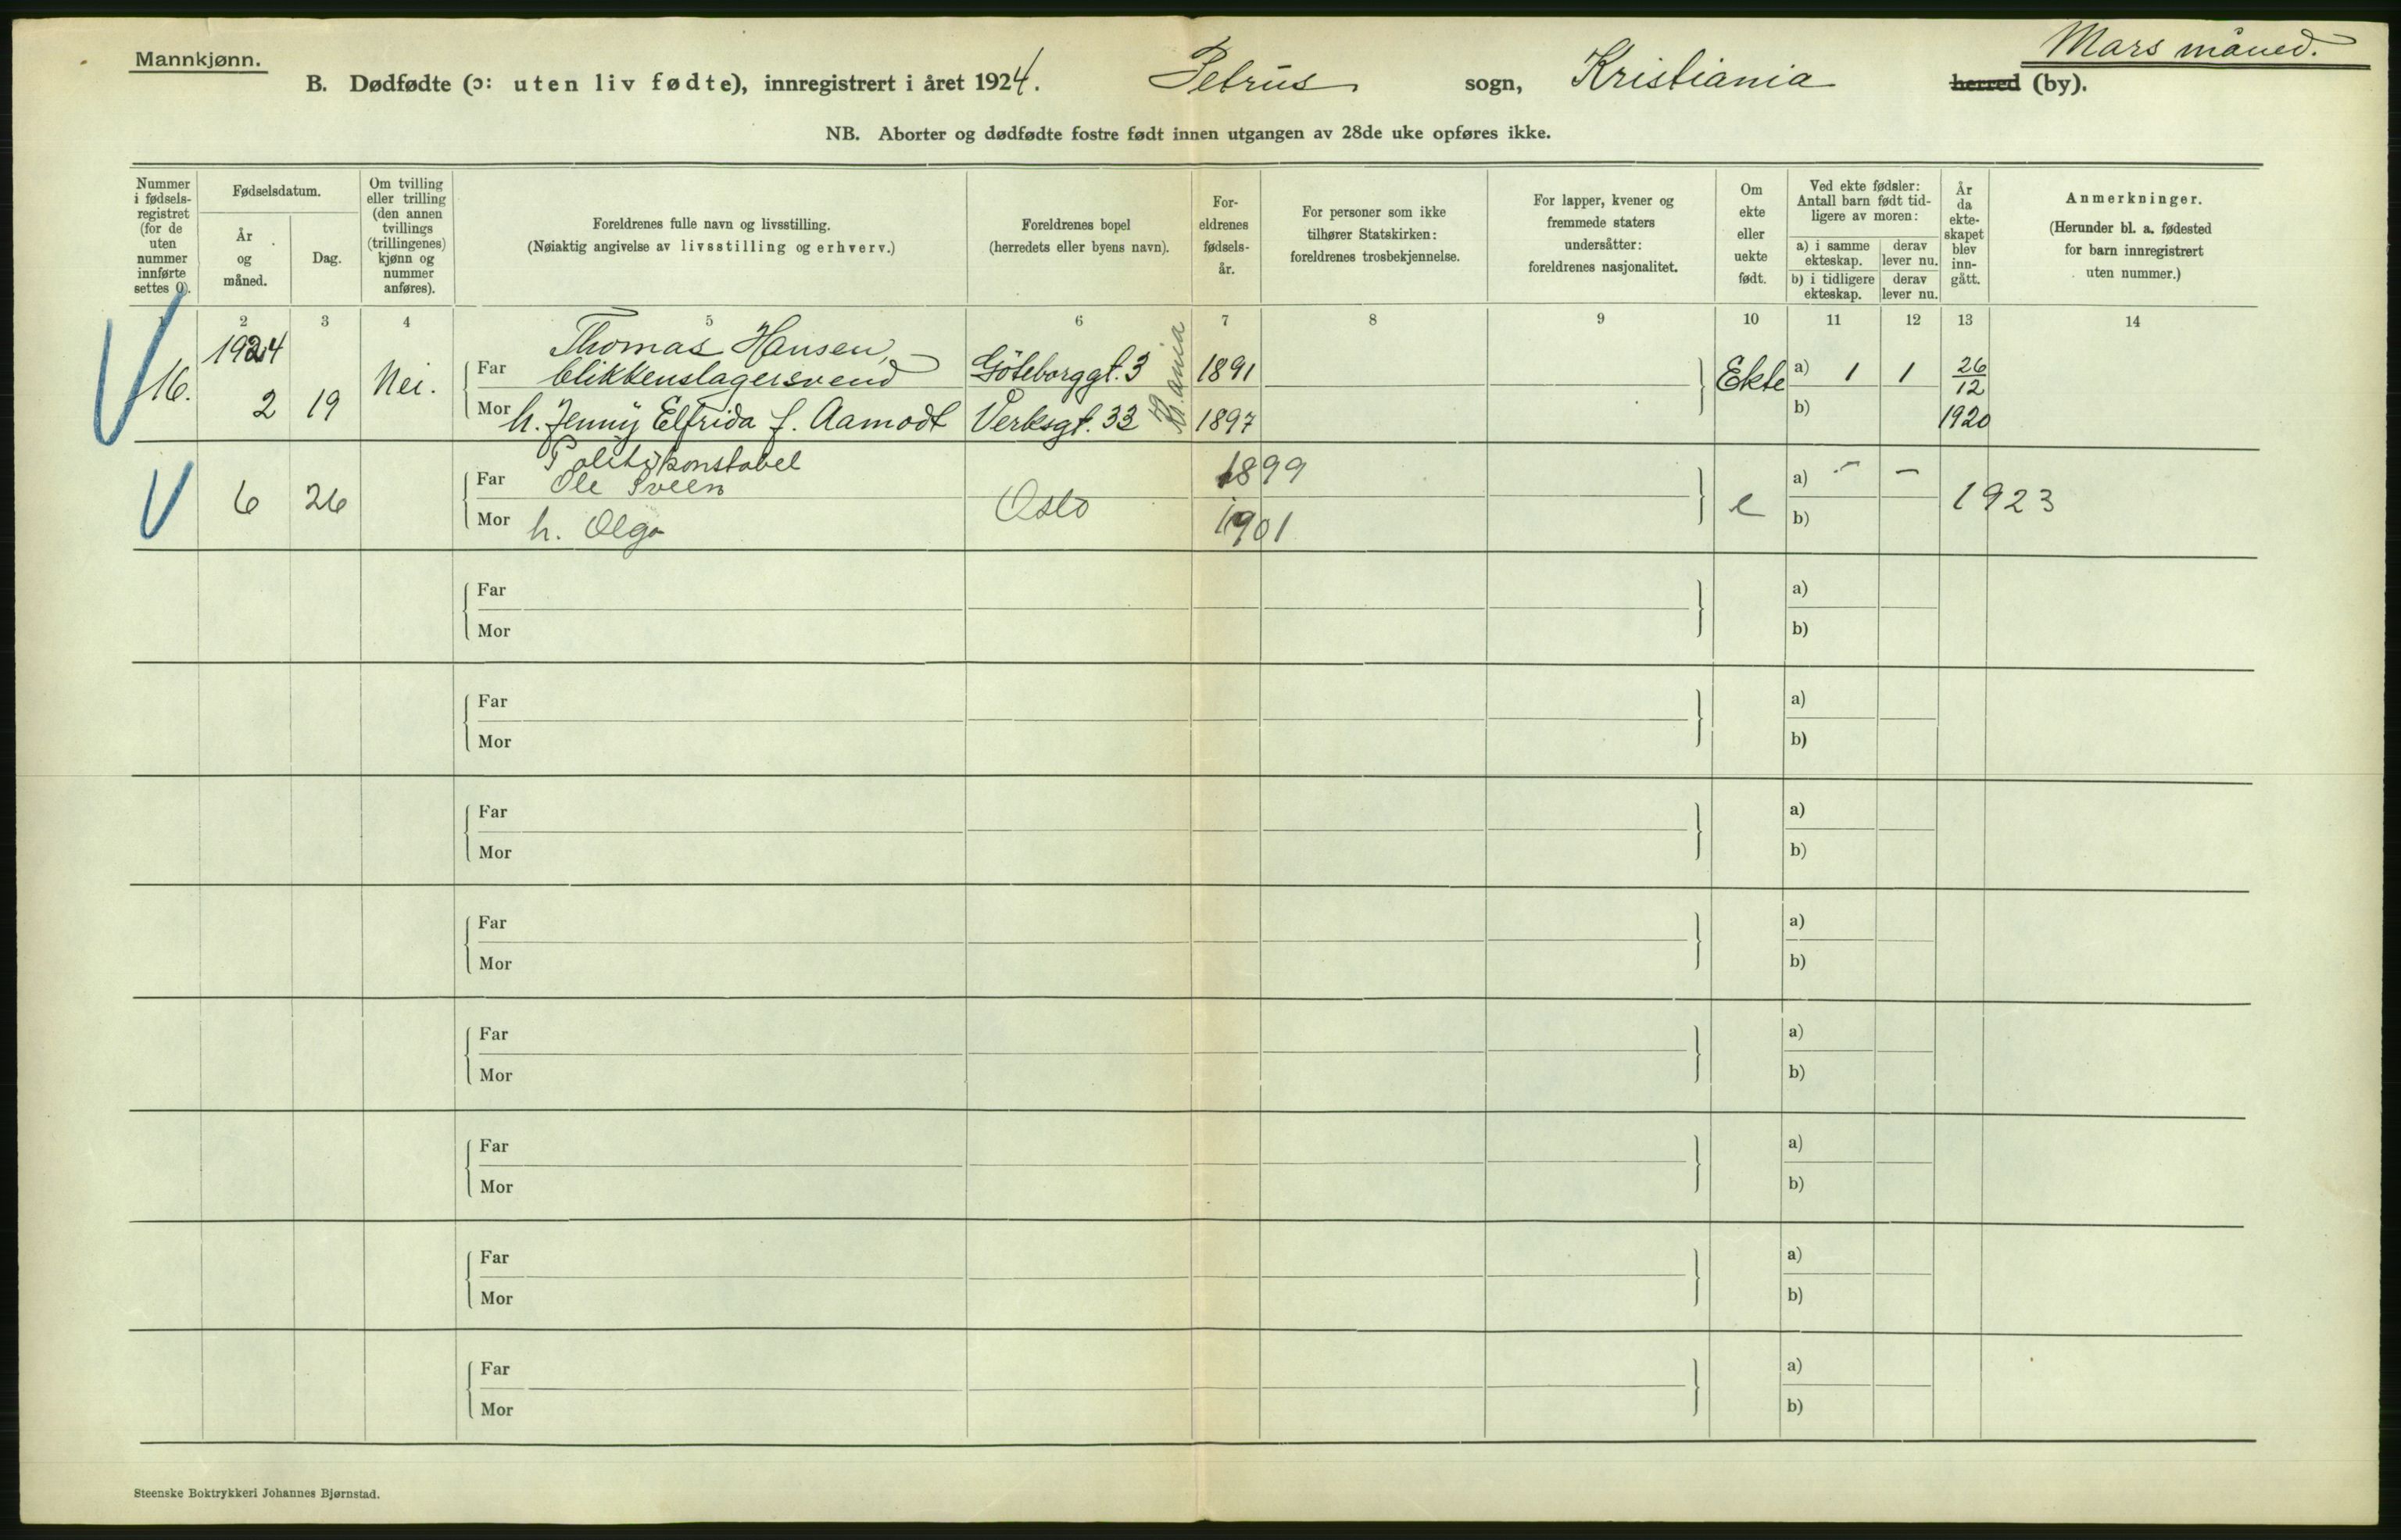 Mannkjønn.
Mars måned.
B. Dødfødte (ɔ: uten liv fødte), innregistrert i året 1924. Petrus sogn, Kristiania herred (by).
NB. Aborter og dødfødte fostre født innen utgangen av 28de uke opføres ikke.
Nummer i fødsels-registret (for de uten nummer innførte settes 0).
Fødselsdatum.
År og måned.
Dag.
Om tvilling eller trilling (den annen tvillings (trillingenes) kjønn og nummer anføres).
Foreldrenes fulle navn og livsstilling.
(Nøiaktig angivelse av livsstilling og erhverv.)
Foreldrenes bopel
(herredets eller byens navn).
For-eldrenes fødsels-år.
For personer som ikke tilhører Statskirken: foreldrenes trosbekjennelse.
For lapper, kvener og fremmede staters undersåtter: foreldrenes nasjonalitet.
Om ekte eller uekte født.
Ved ekte fødsler: Antall barn født tid-ligere av moren:
a) i samme ekteskap.
derav lever nu.
b) i tidligere ekteskap.
derav lever nu.
År da ekte-skapet blev inn-gått.
Anmerkninger.
(Herunder bl. a. fødested for barn innregistrert uten nummer.)
1 2 3 4 5 6 7 8 9 10 11 12 13 14
1924
Thomas Hansen,
16. 2 19 Nei. Far blikkenslagersvend Göteborggt. 3 Kr.ania 1891 Ekte a) 1 1 26/12 1920
Mor h. Jenny Elfrida f. Aamodt Verksgt. 33 1897 b)
Politikonstabel
6 26 Far Ole Sveen Oslo 1899 e a) - - 1923
Mor h. Olga 1901 b)
Far a)
Mor b)
Far a)
Mor b)
Far a)
Mor b)
Far a)
Mor b)
Far a)
Mor b)
Far a)
Mor b)
Far a)
Mor b)
Far a)
Mor b)
Steenske Boktrykkeri Johannes Bjørnstad.